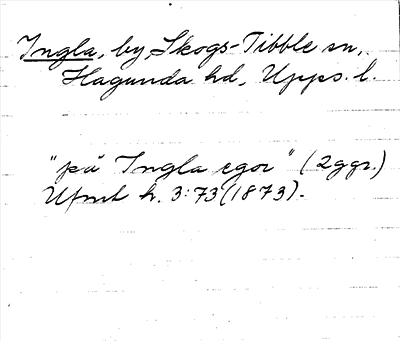 Ingla, by, Skogs-Tibble sn,
Hagunda hd, Upps. l.
"på Ingla egor" (2ggr.)
Ufmt h. 3:73 (1873).